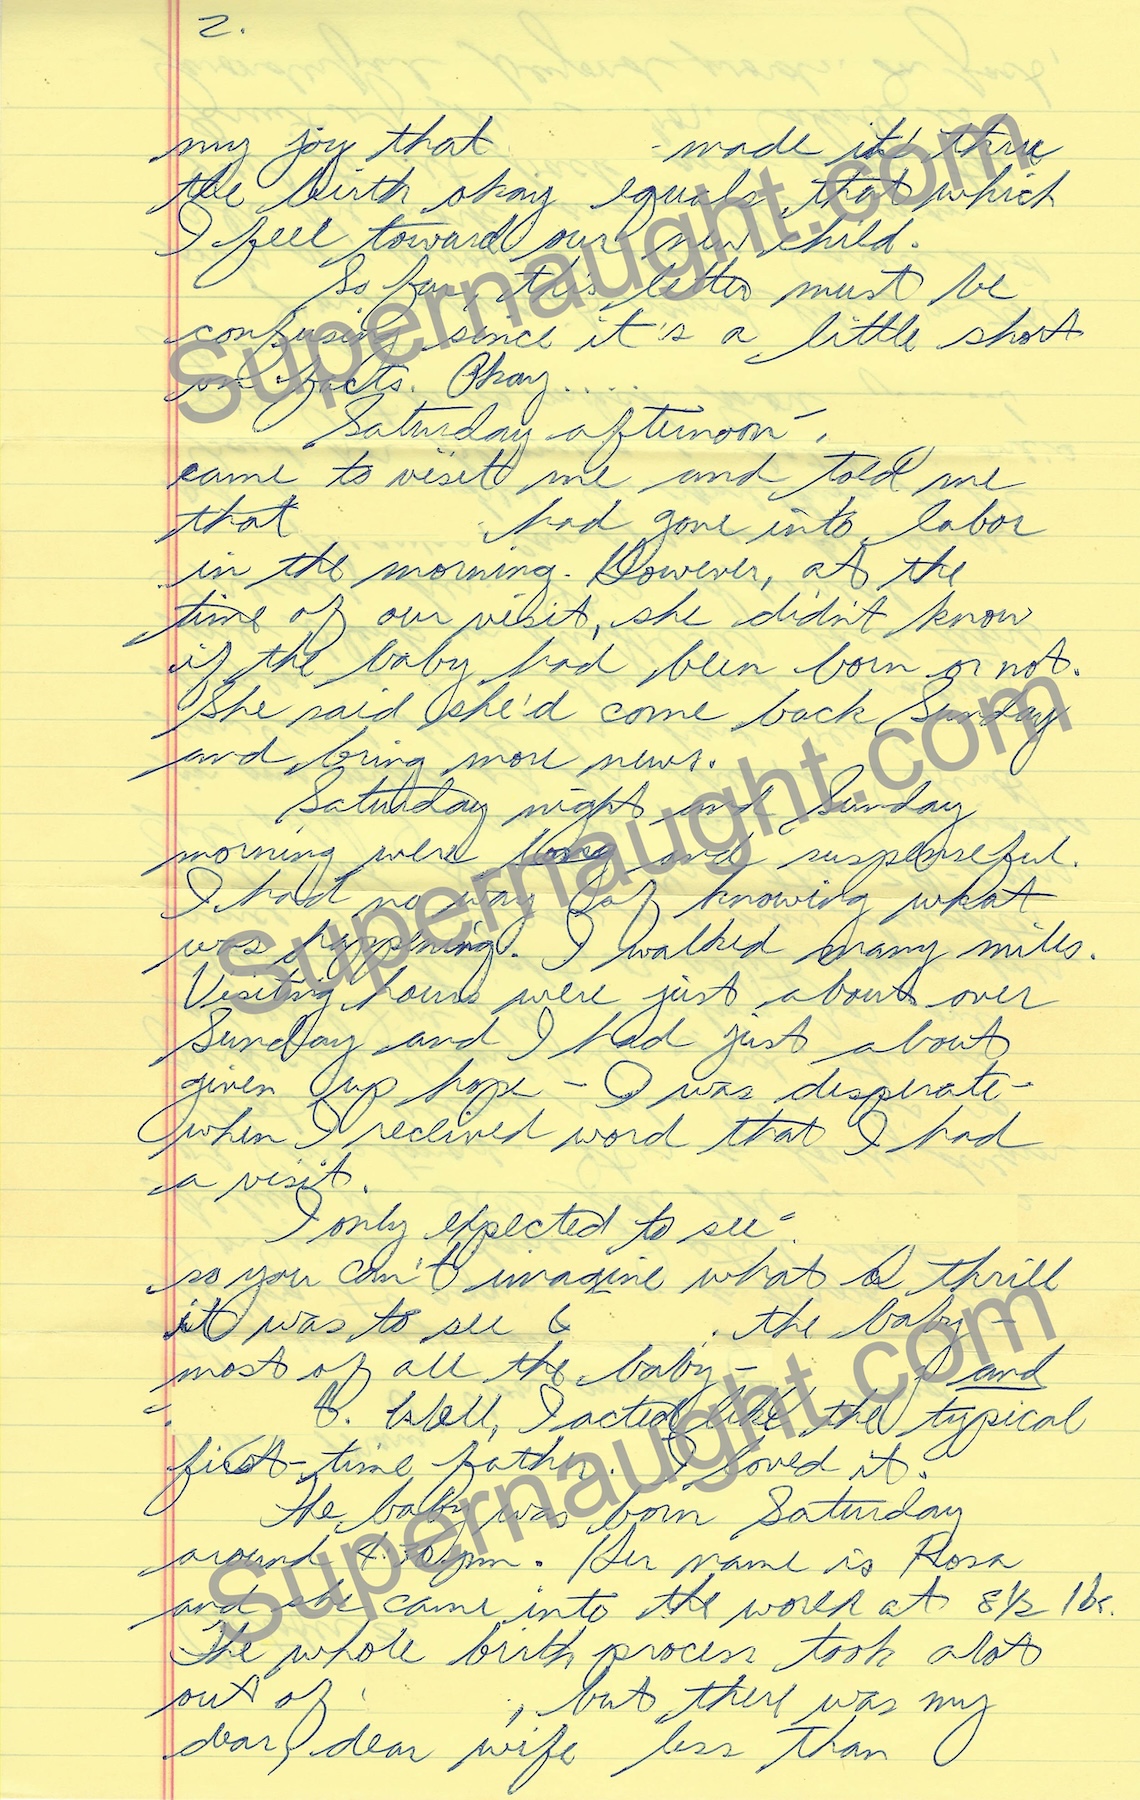 2.
my joy that made it thru
the birth okay equals that which
I feel toward our new child.
So far, this letter must be
confusing since it's a little short
on facts. Okay....
Saturday afternoon
came to visit me and told me
that had gone into labor
in the morning. However, at the
time of our visit, she didn't know
if the baby had been born or not.
She said she'd come back Sunday
and bring more news.
Saturday night and Sunday
morning were long and suspenseful.
I had no way of knowing what
was happening. I walked many miles.
Visiting hours were just about over
Sunday and I had just about
given up hope – I was desperate –
when I received word that I had
a visit.
I only expected to see
so you can't imagine what a thrill
it was to see the baby –
most of all the baby – and
Well, I acted like the typical
first-time father. I loved it.
The baby was born Saturday
around 4:30 pm. Her name is Rosa
and she came into the world at 8½ lbs.
The whole birth process took alot
out of , but there was my
dear, dear wife less than
Supernaught.com
Supernaught.com
Supernaught.com